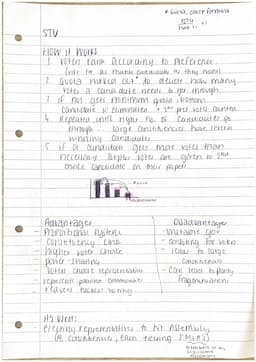 * Quota, check formula
STV
HOW it works
1. Voter rank according to preference
(vote for as many candidates as they want)
2. Quota worked out to decide how many
votes a candidate needs to go through
3. If not gets minimum quota, bottom
candidate is eliminated + 2nd pref votes counted
4. Repeated until right no. of candidates go
through. large constituencies have several
winning candidates
5. if a candidate gets more votes than
necessary surplus votes are given to 2nd
choice candidate on their paper.
Advantages
Disadvantages
- Proportional system
- Constituency link
- Higher voter choice
- power-sharing
- Voter choice representative
represent
- reduces tactical voting
- Unstable gov
- confusing for voters
- leads to large
constituencies
- Can lead to party
fragmentation
As used:
electing representatives to NI Assembly
(18 constituencies, each electing 5 MLAs)